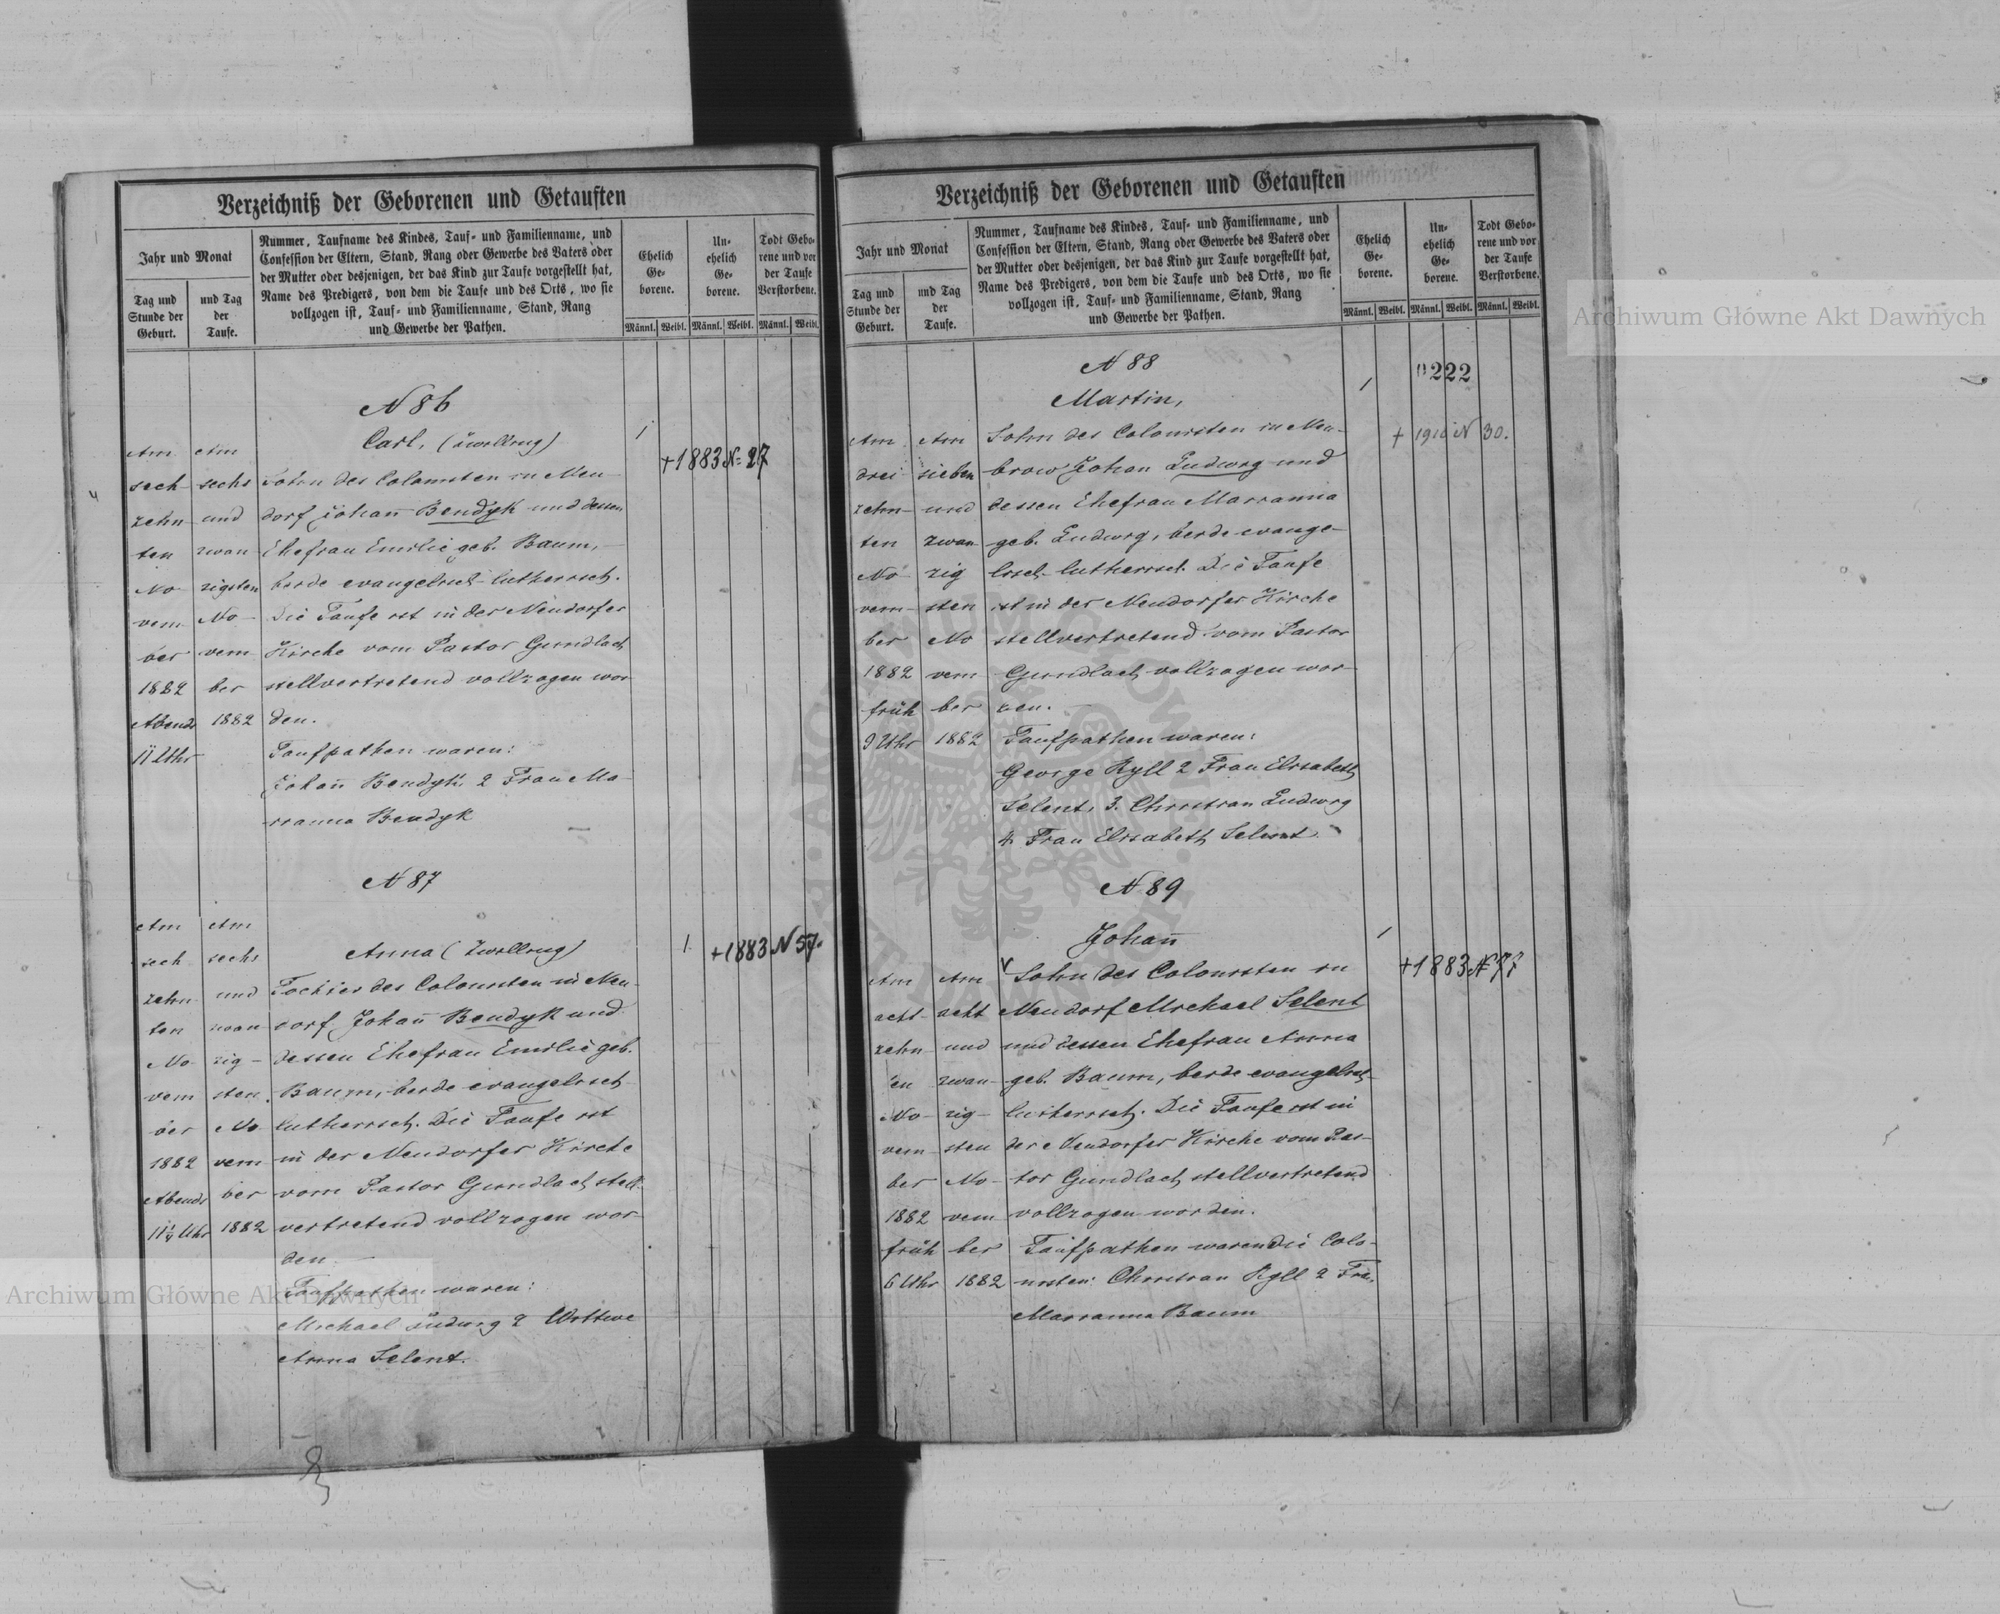 Verzeichniß der Geborenen und Getauften
Jahr und Monat
Tag und Stunde der Geburt.
und Tag der Taufe.
Nummer, Taufname des Kindes, Tauf- und Familienname, und
Confession der Eltern, Stand, Rang oder Gewerbe des Vaters oder
der Mutter oder desjenigen, der das Kind zur Taufe vorgestellt hat,
Name des Predigers, von dem die Taufe und des Orts, wo sie
vollzogen ist, Tauf- und Familienname, Stand, Rang
und Gewerbe der Pathen.
Ehelich Ge- borene.
Un- ehelich Ge- borene.
Todt Gebo- rene und vor der Taufe Verstorbene.
Männl. Weibl. Männl. Weibl. Männl. Weibl.
N 86
Carl, (Zwilling)
1
+1883 N= 27
Am sech zehn ten No vem ber 1882 Abends 11 Uhr
Am sechs und zwan zigsten No vem ber 1882
Sohn des Colonisten in Neu-
dorf Johann Bendyk und dessen
Ehefrau Emilie geb. Baum,
beide evangelisch-lutherisch.
Die Taufe ist in der Neudorfer
Kirche vom Pastor Gundlach
stellvertretend vollzogen wor
den.
Taufpathen waren:
Johann Bendyk, 2 Frau Ma-
rianna Bendyk
N 87
Anna (Zwilling)
1.
+1883 N 57.
Am sech zehn ten No vem ber 1882 Abends 11¼ Uhr
Am sechs und zwan zig sten No vem ber 1882
Tochter des Colonisten in Neu-
dorf Johann Bendyk und
dessen Ehefrau Emilie geb.
Baum, beide evangelisch-
lutherisch. Die Taufe ist
in der Neudorfer Kirche
vom Pastor Gundlach stell-
vertretend vollzogen wor-
den.
Taufpathen waren:
Michael Ludwig 2 Wittwe
Anna Selent.
Verzeichniß der Geborenen und Getauften
Jahr und Monat
Tag und Stunde der Geburt.
und Tag der Taufe.
Nummer, Taufname des Kindes, Tauf- und Familienname, und
Confession der Eltern, Stand, Rang oder Gewerbe des Vaters oder
der Mutter oder desjenigen, der das Kind zur Taufe vorgestellt hat,
Name des Predigers, von dem die Taufe und des Orts, wo sie
vollzogen ist, Tauf- und Familienname, Stand, Rang
und Gewerbe der Pathen.
Ehelich Ge- borene.
Un- ehelich Ge- borene.
Todt Gebo- rene und vor der Taufe Verstorbene.
Männl. Weibl. Männl. Weibl. Männl. Weibl.
N 88
222
Martin,
1
N 30.
Am drei zehn ten No vem ber 1882 früh 9 Uhr
Am sieben und zwan zig sten No vem ber 1882
Sohn des Colonisten in Neu-
brow Johan Ludwig und
dessen Ehefrau Marianna
geb. Ludwig, beide evange-
lisch-lutherisch. Die Taufe
ist in der Neudorfer Kirche
stellvertretend vom Pastor
Gundlach vollzogen wor-
den.
Taufpathen waren:
George Ryll 2 Frau Elisabeth
Selent, 3. Christian Ludwig
4. Frau Elisabeth Selent
N 89
Johann
1
+1883 N 77
Am acht zehn ten No vem ber 1882 früh 6 Uhr
Am acht und zwan zig sten No vem ber 1882
Sohn des Colonisten in
Neudorf Michael Selent
und dessen Ehefrau Anna
geb. Baum, beide evangelisch-
lutherisch. Die Taufe ist in
der Neudorfer Kirche vom Pas-
tor Gundlach stellvertretend
vollzogen worden.
Taufpathen waren die Colo-
nisten: Christian Ryll 2 Frau
Marianna Baum
Archiwum Główne Akt Dawnych
Archiwum Główne Akt Dawnych